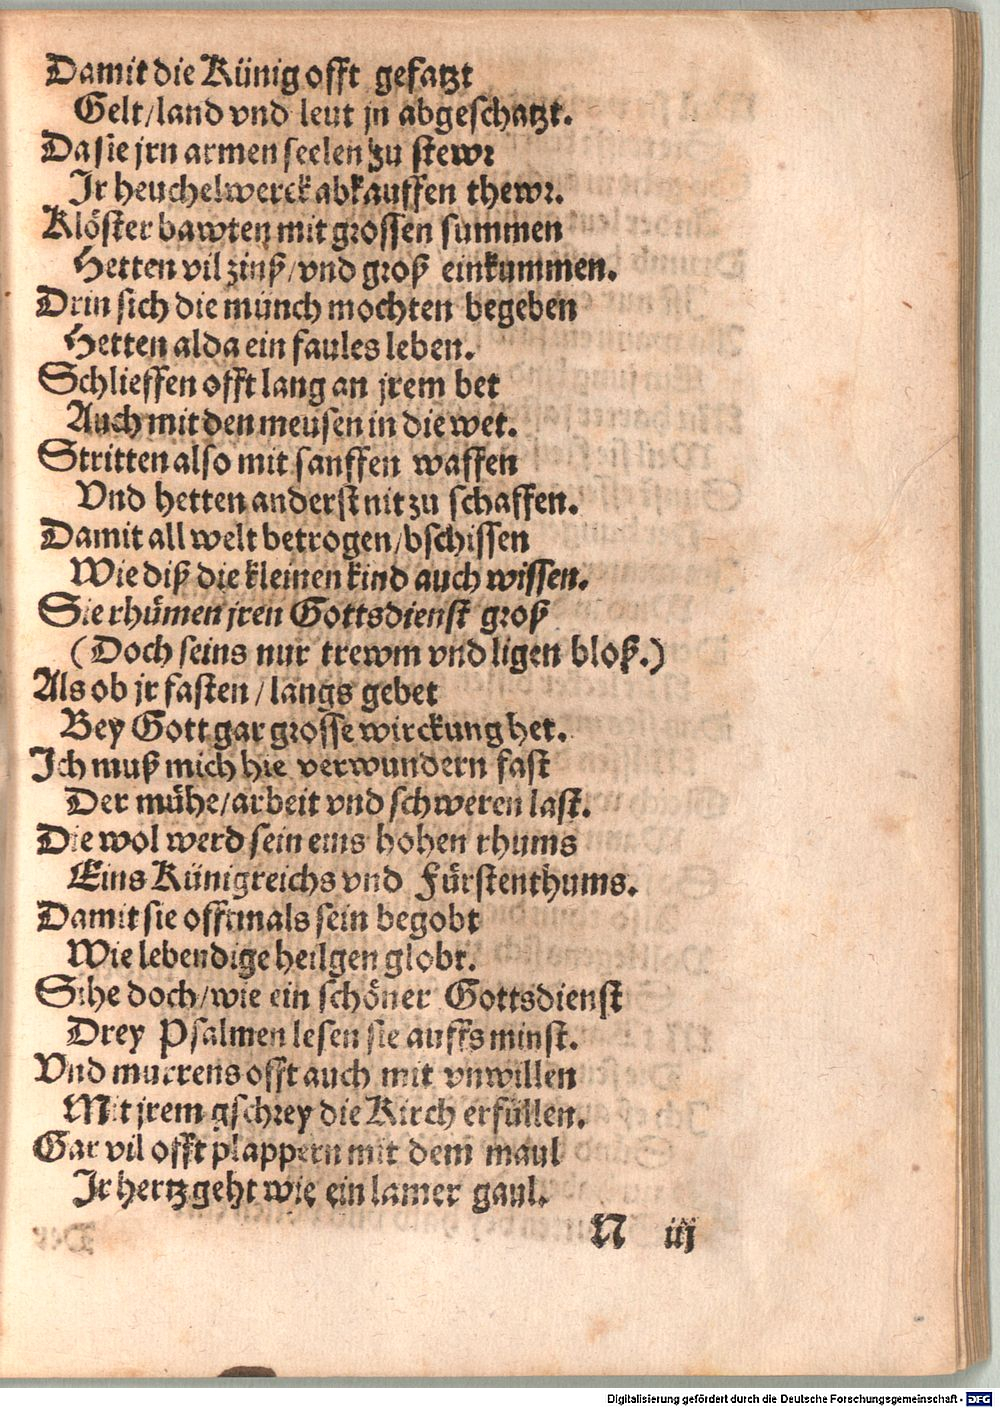 Damit die Künig offt gefatzt
Gelt/land vnd leut jn abgeschatzt.
Da sie jrn armen seelen zu stewr
Ir heuchelwerck abkauffen thewr.
Klöster bawten mit grossen summen
Hetten vil zinß/vnd groß einkummen.
Drin sich die münch mochten begeben
Hetten alda ein faules leben.
Schlieffen offt lang an jrem bet
Auch mit den meusen in die wet.
Stritten also mit sanfften waffen
Vnd hetten anderst nit zu schaffen.
Damit all welt betrogen/bschissen
Wie diß die kleinen kind auch wissen.
Sie rhümen jren Gottsdienst groß
(Doch seins nur trewm vnd ligen bloß.)
Als ob jr fasten/langs gebet
Bey Gott gar grosse wirckung het.
Ich muß mich hie verwundern fast
Der mühe/arbeit vnd schweren last.
Die wol werd sein eins hohen rhums
Eins Künigreichs vnd Fürstenthums.
Damit sie offtmals sein begobt
Wie lebendige heilgen globt.
Sihe doch/wie ein schöner Gottsdienst
Drey Psalmen lesen sie auffs minst.
Vnd murrens offt auch mit vnwillen
Mit jrem gschrey die Kirch erfüllen.
Gar vil offt plappern mit dem maul
Ir hertz geht wie ein lamer gaul.
N iij
Digitalisierung gefördert durch die Deutsche Forschungsgemeinschaft - DFG